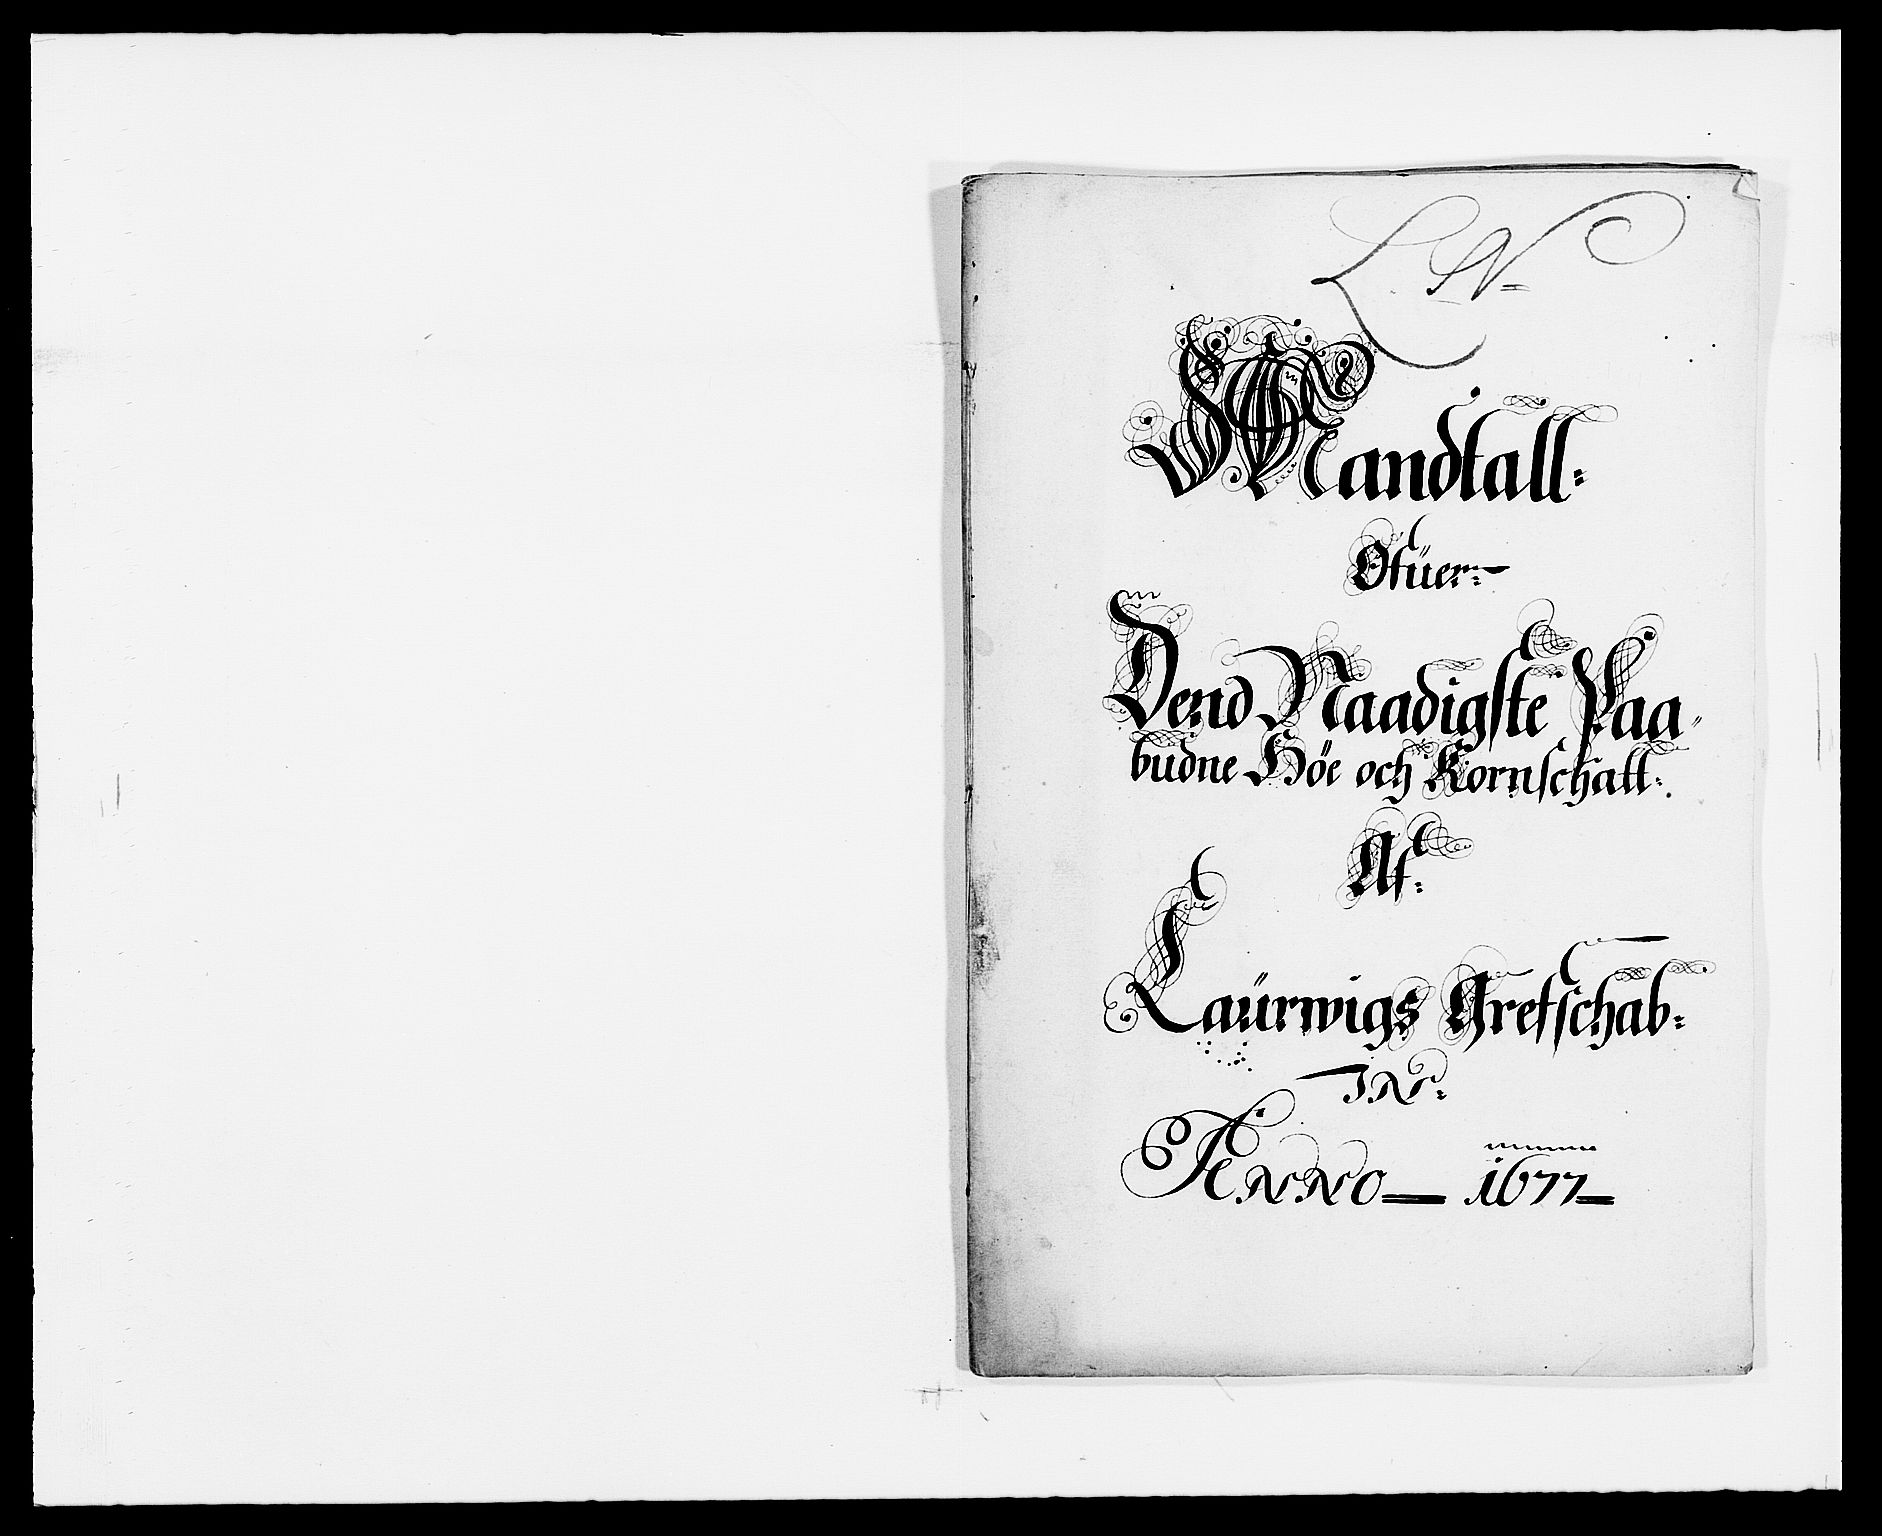 L. N=
Mandtall:
Ofüer:
Dend Naadigste Paa-
budne Höe och Kornschatt:.
Af:
Laürwigs Grefschab:
IN:
ANNO 1677